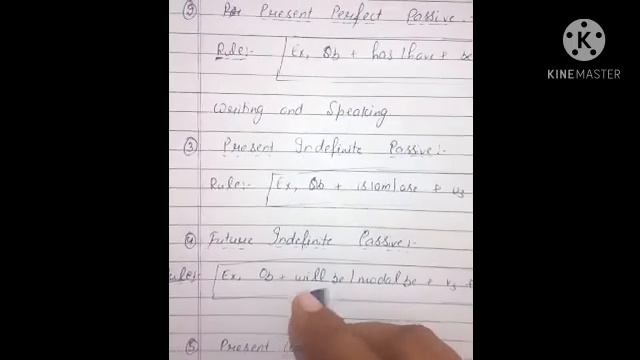 ② Present Perfect Passive :-
Rule:- [Ex, Ob + has/have +
Writing and Speaking
③ Present Indefinite Passive:-
Rule:- [Ex, Ob + is/am/are + v3
④ Future Indefinite Passive:-
Rule:- [Ex, Ob + will be / modal be + v3 +
⑤ Present
K
KINEMASTER